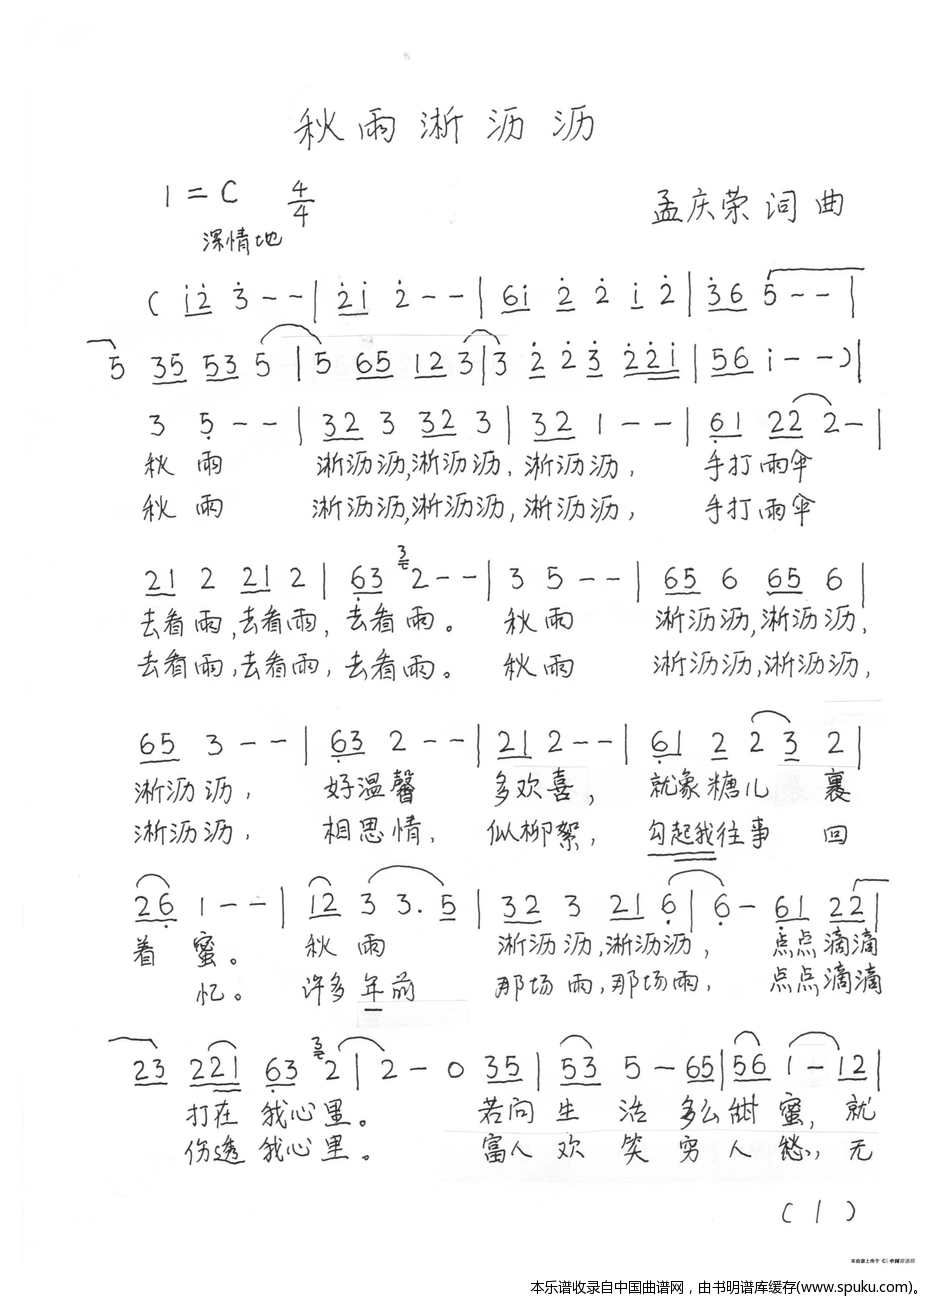 秋雨淅沥沥
1=C 4/4
孟庆荣词曲
深情地
( i̇2̇ 3̇ - - | 2̇i̇ 2̇ - - | 6i̇ 2̇ 2̇ i̇ 2̇ | 3̇6 5̇ - - |
5 35 53 5 | 5 65 12 3 | 3 2̇ 2̇ 3̇ 2̇2̇i̇ | 56 i̇ - - ) |
3 5̣ - - | 32 3 32 3 | 32 1 - - | 6̣1 22 2 - |
秋雨 淅沥沥,淅沥沥, 淅沥沥, 手打雨伞
秋雨 淅沥沥,淅沥沥, 淅沥沥, 手打雨伞
21 2 21 2 | 6̣3 3 2 - - | 3 5 - - | 65 6 65 6 |
去看雨,去看雨,去看雨。 秋雨 淅沥沥,淅沥沥,
去看雨,去看雨,去看雨。 秋雨 淅沥沥,淅沥沥,
65 3 - - | 6̣3 2 - - | 21 2 - - | 6̣1 2 2 3 2 |
淅沥沥, 好温馨 多欢喜, 就象糖儿 裹
淅沥沥, 相思情, 似柳絮, 勾起我往事 回
26̣ 1 - - | 12 3 3. 5 | 32 3 21 6̣ | 6̣ - 6̣1 22 |
着 蜜。 秋 雨 淅沥沥,淅沥沥, 点点滴滴
忆。 许多年前 那场雨,那场雨, 点点滴滴
23 221 6̣3 3 2 | 2 - 0 35 | 53 5 - 65 | 56 1 - 12 |
打在 我心里。 若问 生 活 多么甜 蜜, 就
伤透 我心里。 富人 欢 笑 穷人 愁,, 无
(1)
本乐谱收录自中国曲谱网，由书明谱库缓存(www.spuku.com)。